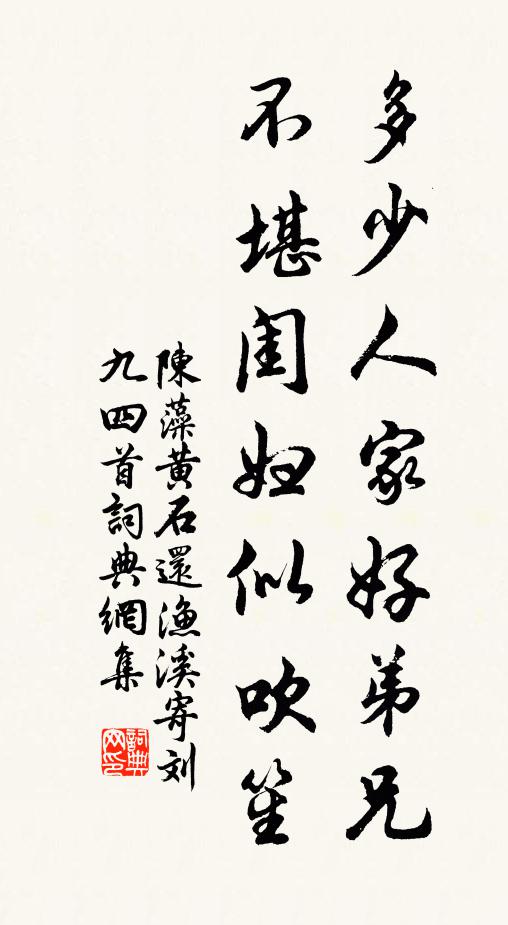 多少人家好弟兄
不堪閨婦似吹笙
陳藻黄石還漁溪寄刘
九四首詞典網集
詞典网印